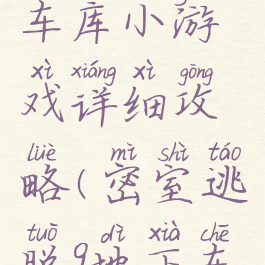 车库小游
xì xiáng xì gōng
戏详细攻
lüè mì shì táo
略(密室逃
tuō dì xià chē
脱9地下车